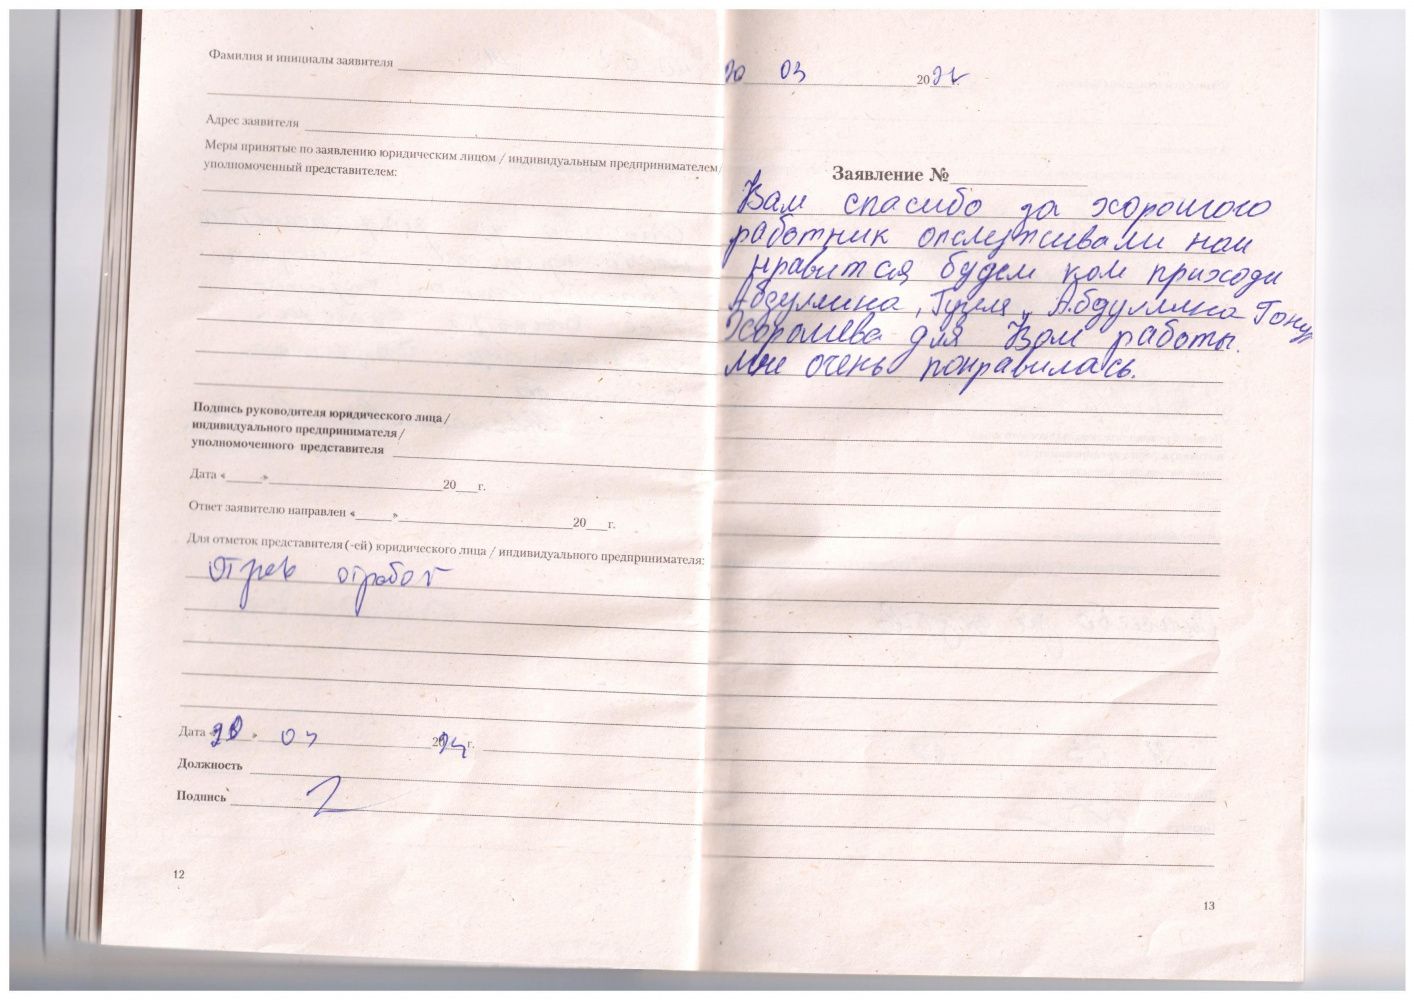 Фамилия и инициалы заявителя
Адрес заявителя
Меры принятые по заявлению юридическим лицом / индивидуальным предпринимателем/
уполномоченный представителем:
Подпись руководителя юридического лица /
индивидуального предпринимателя /
уполномоченного представителя
Дата «____»____20__г.
Ответ заявителю направлен «____»____20__г.
Для отметок представителя (-ей) юридического лица / индивидуального предпринимателя:
Дата «20» 03 20 г.
Должность
Подпись
12
20 03 20 г.
Заявление №
Вам спасибо за хорошого
работник опслуживали нам
нравится будем ком приходи
Абдуллина, Гузеля, Абдуллина
Хорошева для Вам работы.
Мне очень понравилась.
13